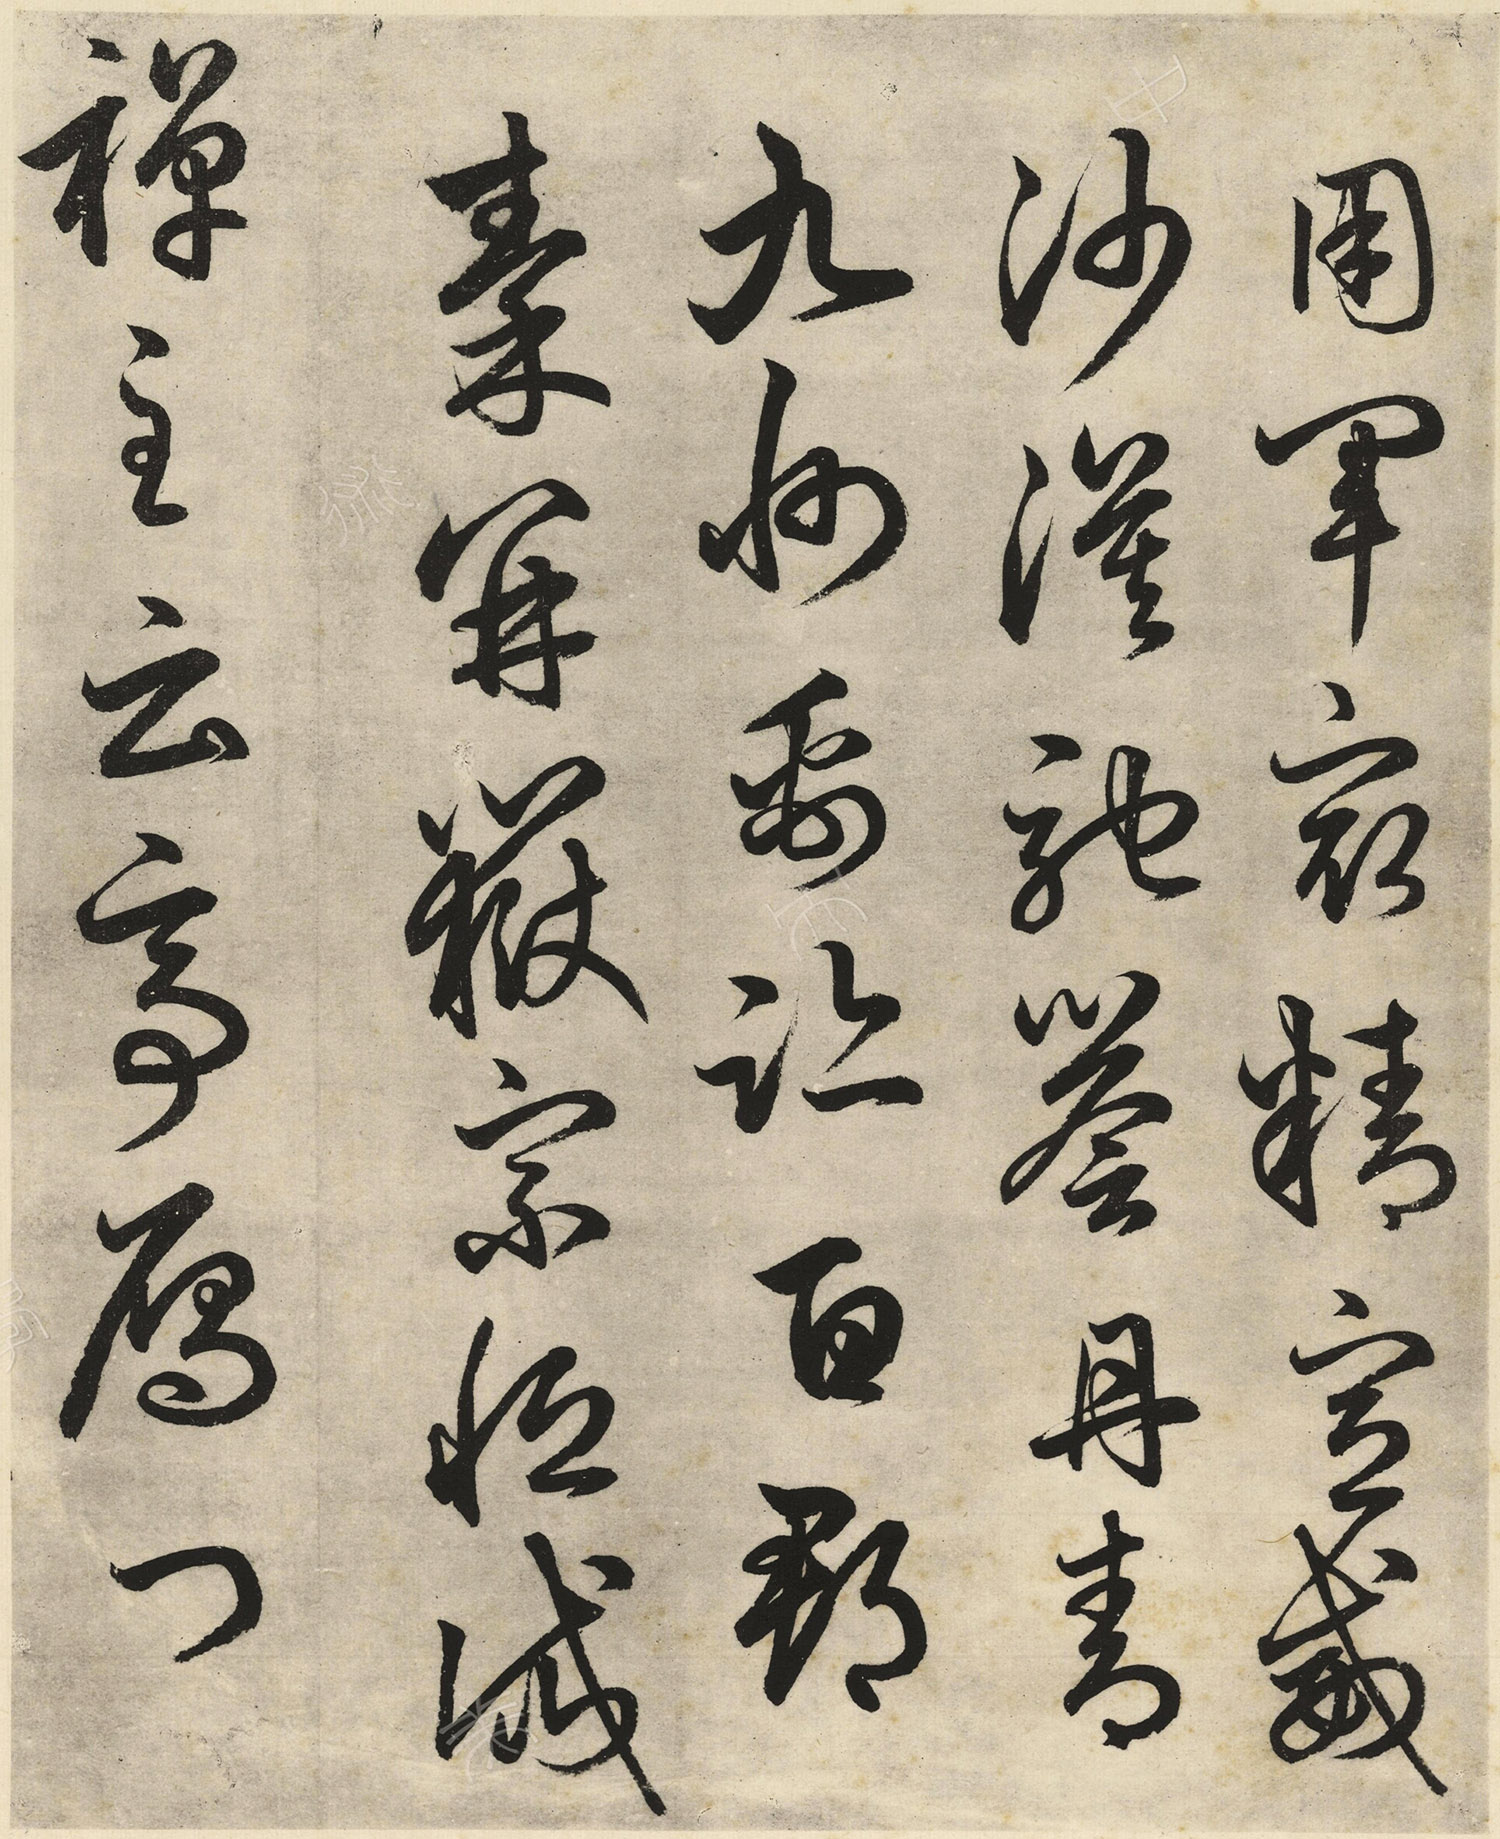 用軍最精宣威
沙漠馳譽丹青
九州禹跡百郡
秦并嶽宗恒岱
禪主云亭鴈門